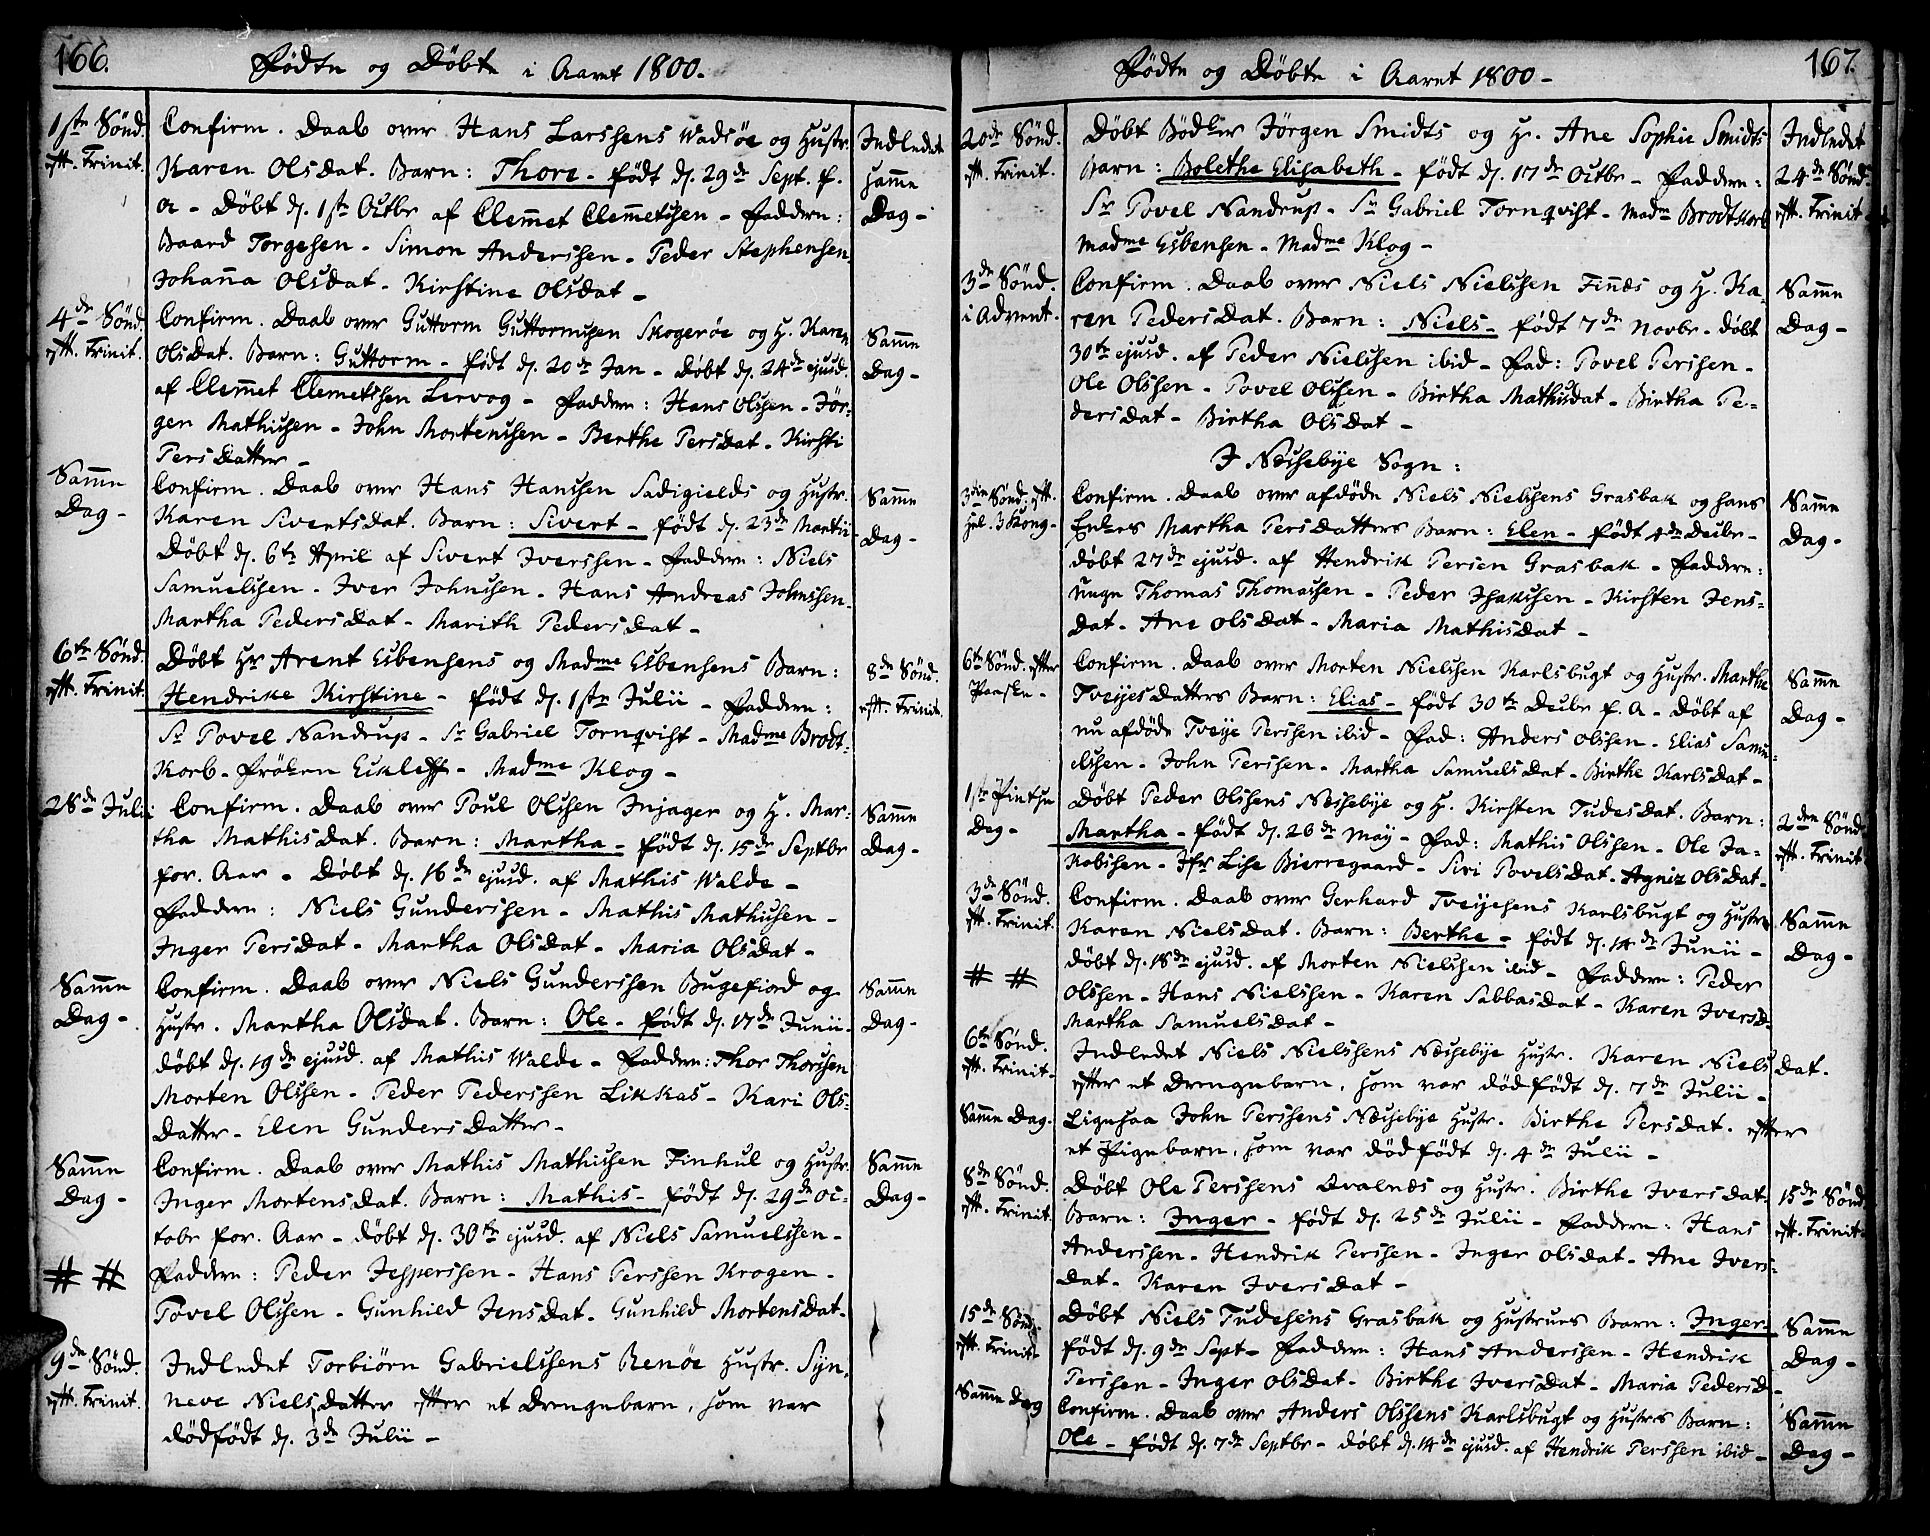 166.
Fødte og Døbte i Aaret 1800.
1ste Sønd. eft. Trinit.
Confirm. Daab over Hans Larssens Wadsøe og Hustr.
Karen Olsdat. Barn: Thore - født d. 29de Sept. f.
a - Døbt d. 1ste Octbr af Clemet Clemetssen - Faddere:
Baard Torgesen - Simon Anderssen - Peder Stephensen
Johanna Olsdat - Kirstine Olsdat -
Indledet samme Dag -
4de Sønd. eft. Trinit.
Confirm. Daab over Guttorm Guttormssen Skogerøe og H. Karen
Olsdat. Barn: Guttorm - født d. 20de Jan - døbt d. 24de ejusd.
af Clemet Clemetssen Lervog - Faddere: Hans Olssen - Jør-
gen Mathissen - John Mortenssen - Berthe Persdat - Kirsti
Persdatter -
Samme Dag -
Samme Dag -
Confirm. Daab over Hans Hanssen Sadigields og Hustr.
Karen Sivertsdat. Barn: Sivert - født d. 23de Martii
Døbt d. 6te April af Sivert Iverssen - Faddere: Niels
Samuelssen - Iver Johnssen - Hans Andreas Johnssen.
Martha Pedersdat - Marith Pedersdat -
Samme Dag -
6te Sønd. eft. Trinit.
Døbt Hr Arent Esbensens og Madme Esbensens Barn:
Hendrike Kirstine - født d. 1ste Julii - Faddere:
Sr Povel Nandrup - Sr Gabriel Tornqvist - Madme Brodt-
korb - Frøken Eikleff - Madme Klog -
8de Sønd. eft. Trinit.
28de Julii
Confirm. Daab over Poul Olssen Injager og H. Mar-
tha Mathisdat. Barn: Martha - født d. 15de Septbr
for. Aar - Døbt d. 16de ejusd. af Mathis Walde -
Faddere: Niels Gunderssen - Mathis Mathissen -
Inger Persdat - Martha Olsdat - Maria Olsdat -
Samme Dag -
Samme Dag -
Confirm. Daab over Niels Gunderssen Bugefiord og
Hustr. Martha Olsdat. Barn: Ole - født d. 17de Junii -
døbt d. 19de ejusd. af Mathis Walde - Faddere: Thor Thorssen
Morten Olssen - Peder Pederssen Likkas - Kari Ols-
datter - Elen Gundersdatter -
Samme Dag -
Samme Dag -
Confirm. Daab over Mathis Mathissen Finhul og Hustr.
Inger Mortensdat. Barn: Mathis - født d. 29de Oc-
tobr for. Aar - døbt d. 30te ejusd. af Niels Samuelssen -
# # Faddere: Peder Jesperssen - Hans Perssen Krogen -
Povel Olssen - Gunhild Jensdat - Gunhild Mortensdat -
Samme Dag -
9de Sønd. eft. Trinit.
Indledet Torbiørn Gabrielssens Renøe Hustr. Syn-
neve Nielsdatter efter et Drengebarn, som var
dødfødt d. 3de Julii -
167.
Fødte og Døbte i Aaret 1800 -
20de Sønd. eft. Trinit.
Døbt Bødker Jørgen Smidts og H. Ane Sophie Smidts
Barn: Bolethe Elisabeth - født d. 17de Octbr - Faddere:
Sr Povel Nandrup - Sr Gabriel Tornqvist - Madme Brodtkorb
Madme Esbensen - Madme Klog -
Indledet 24de Sønd. eft. Trinit.
3de Sønd. i Advent.
Confirm. Daab over Niels Nielssen Finnes og H. Ka-
ren Pedersdat. Barn: Niels - født 7de Novbr - døbt
30te ejusd. af Peder Nielssen ibid - Fad: Povel Perssen -
Ole Olssen - Povel Olssen - Birtha Mathisdat - Birtha Pe-
dersdat - Birtha Olsdat -
Samme Dag -
I Næssebye Sogn:
3die Sønd. eft. Hel. 3 Kong -
Confirm. Daab over afdøde Niels Nielssens Grasbak og hans
Enkes Martha Persdatters Barn: Elen - født 4de Decbr -
døbt 27de ejusd. af Hendrik Persen Grasbak - Faddere:
unge Thomas Thomassen - Peder Isakssen - Kirsten Jens-
dat - Ane Olsdat - Maria Mathisdat -
Samme Dag -
6te Sønd. efter Paaske -
Confirm. Daab over Morten Nielssen Karlsbugt og Hustr. Marthe
Tveijesdatters Barn: Elias - født 30te Decbr f. A - Døbt af
nu afdøde Tveije Perssen ibid - Fad: Anders Olssen - Elias Samu-
elssen - John Perssen - Martha Samuelsdat - Birthe Karlsdat -
Samme Dag -
1ste Pintse Dag -
Døbt Peder Olssens Næssebye og H. Kirsten Tudesdat. Barn:
Martha - født d. 26de May - Fad: Mathis Olssen - Ole Ja-
kobsen - Jfr Lise Bierregaard - Siri Povelsdat - Agniz Olsdat -
2den Sønd. eft. Trinit.
3de Sønd. eft. Trinit.
Confirm. Daab over Gerhard Tveijesens Karlsbugt og Hustr.
Karen Nielsdat. Barn: Berthe - født d. 14de Junii -
døbt d. 18de ejusd. af Morten Nielssen ibid - Faddere: Peder
# # Olssen - Hans Nielssen - Karen Sabbasdat - Karen Iversd -
Martha Samuelsdat -
Samme Dag -
6te Sønd. eft. Trinit -
Indledet Niels Nielssens Næssebye Hustr. Karen Nielsdat.
efter et Drengebarn, som var dødfødt d. 7de Julii -
Samme Dag.
Ligesaa John Perssens Næssebye Hustr. Birthe Persdat. efter
et Pigebarn, som var dødfødt d. 4de Julii -
8de Sønd. eft. Trinit.
Døbt Ole Perssens Qvalnæs og Hustr. Birthe Iversdat
Barn: Inger - født d. 25de Julii - Faddere: Hans
Anderssen - Hendrik Perssen - Inger Olsdat - Ane Ivers-
dat - Karen Iversdat -
15de Sønd. eft. Trinit -
15de Sønd. eft. Trinit -
Døbt Niels Tudesens Grasbak og Hustrues Barn: Inger
født d. 9de Sept - Faddere: Hans Anderssen - Hendrik
Perssen - Inger Olsdat - Birthe Iversdat - Maria Pedersd -
Samme Dag -
Samme dag
Confirm. Daab over Anders Olssens Karlsbugt og Hustrs Barn:
Ole - født d. 7de Septbr - døbt d. 14de ejusd. af Hendrik Perssen ibid -
Samme Dag -